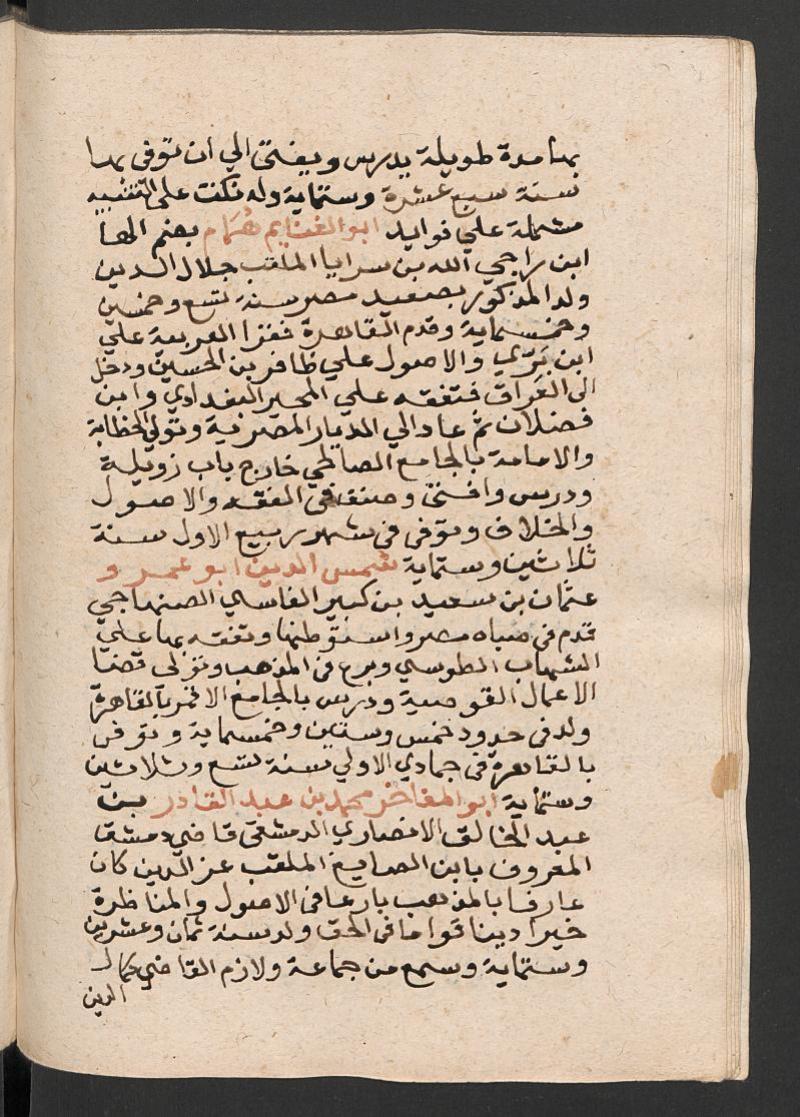 بها مدة طويلة يدرس ويفتي الي ان توفي بها
سنة سبع عشرة وستماية وله نكت على التنبيه
مشتملة علي فوايد ابو الغنايم همام بضم الها
ابن راجي الله بن سرايا الملقب جلال الدين
ولد المذكور بصعيد مصر سنة تسع وخمسين
وخمسماية وقدم القاهرة فقرا العربية علي
ابن بري والاصول علي ظافر بن الحسين ودخل
الى العراق فتفقه علي المجير البغدادي وابن
فضلان ثم عاد الي الديار المصرية وتولي الخطابة
والامامة بالجامع الصالحي خارج باب زويلة
ودرس وافتي وصنف في الفقه والاصول
والخلاف وتوفي في شهر ربيع الاول سنة
ثلاثين وستماية شمس الدين ابو عمرو
عثمان بن سعيد بن كبير الفاسي الصنهاجي
قدم في صباه مصر واستوطنها وتفقه بها علي
الشهاب الطوسي وبرع في المذهب وتولي قضا
الاعمال القوصية ودرس بالجامع الاقمر بالقاهرة
ولد في حدود خمس وستين وخمسماية وتوفي
بالقاهرة في جمادي الاولي سنة تسع وثلاثين
وستماية ابو المفاخر محمد بن عبد القادر بن
عبد الخالق الانصاري الدمشقي قاضي دمشق
المعروف بابن الصايغ الملقب عز الدين كان
عارفا بالمذهب بارعا في الاصول والمناظرة
خيرا دينا قواما في الحق ولد سنة ثمان وعشرين
وستماية وسمع من جماعة ولازم القاضي كمال
الدين